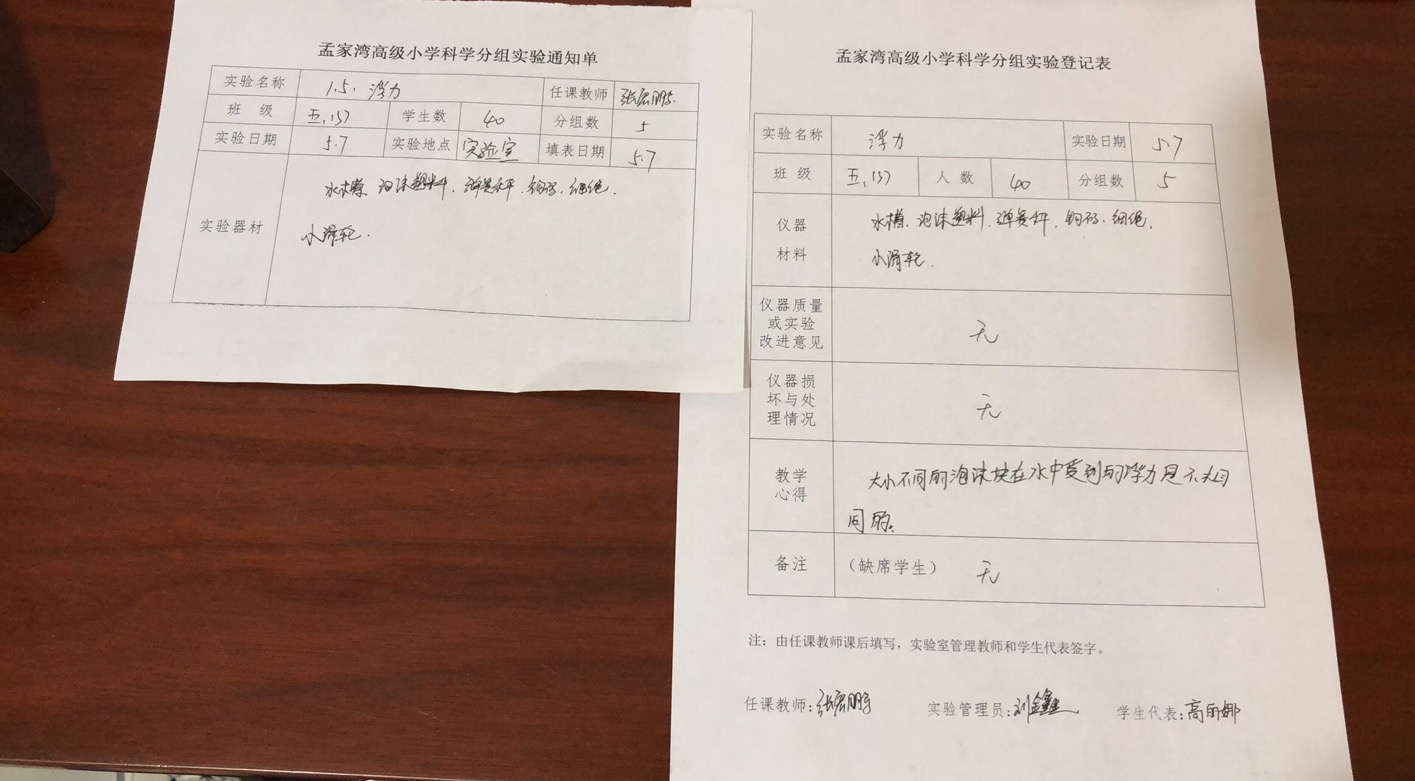 孟家湾高级小学科学分组实验通知单
实验名称 1.5. 浮力 任课教师 张宏鹏
班 级 五.(3) 学生数 40 分组数 5
实验日期 5.7 实验地点 实验室 填表日期 5.7
实验器材 水槽.泡沫塑料.弹簧秤.钩码.细绳.
小滑轮.
孟家湾高级小学科学分组实验登记表
实验名称 浮力 实验日期 5.7
班 级 五.(3) 人 数 40 分组数 5
仪器
材料
水槽.泡沫塑料.弹簧秤.钩码.细绳.
小滑轮.
仪器质量
或实验
改进意见
无
仪器损
坏与处
理情况
无
教学
心得
大小不同的泡沫块在水中受到的浮力是不相
同的.
备注 (缺席学生) 无
注：由任课教师课后填写，实验室管理教师和学生代表签字。
任课教师:张宏鹏 实验管理员:刘鑫 学生代表:高丽娜